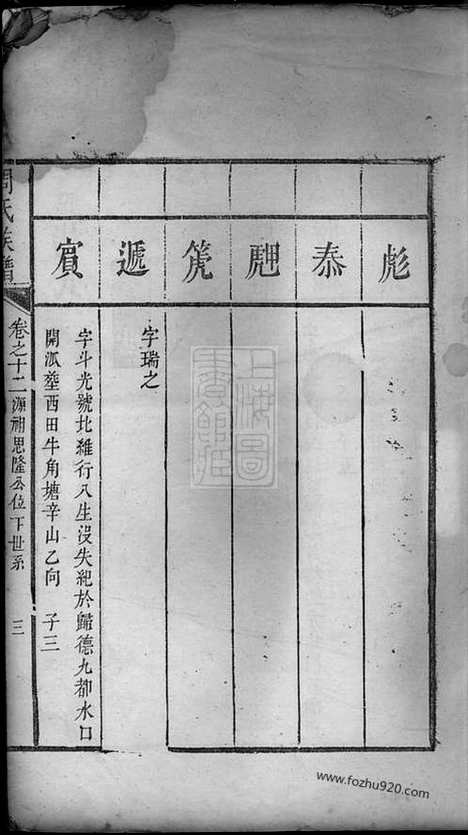 彪
泰
遞
字瑞之
賓
字斗光號北雅行八生沒失紀於歸德九都水口
開派塟西田牛角塘辛山乙向 子三
周氏族譜
卷之十二源湘思隆公位下世系 三
上海圖書館藏
www.fozhu920.com